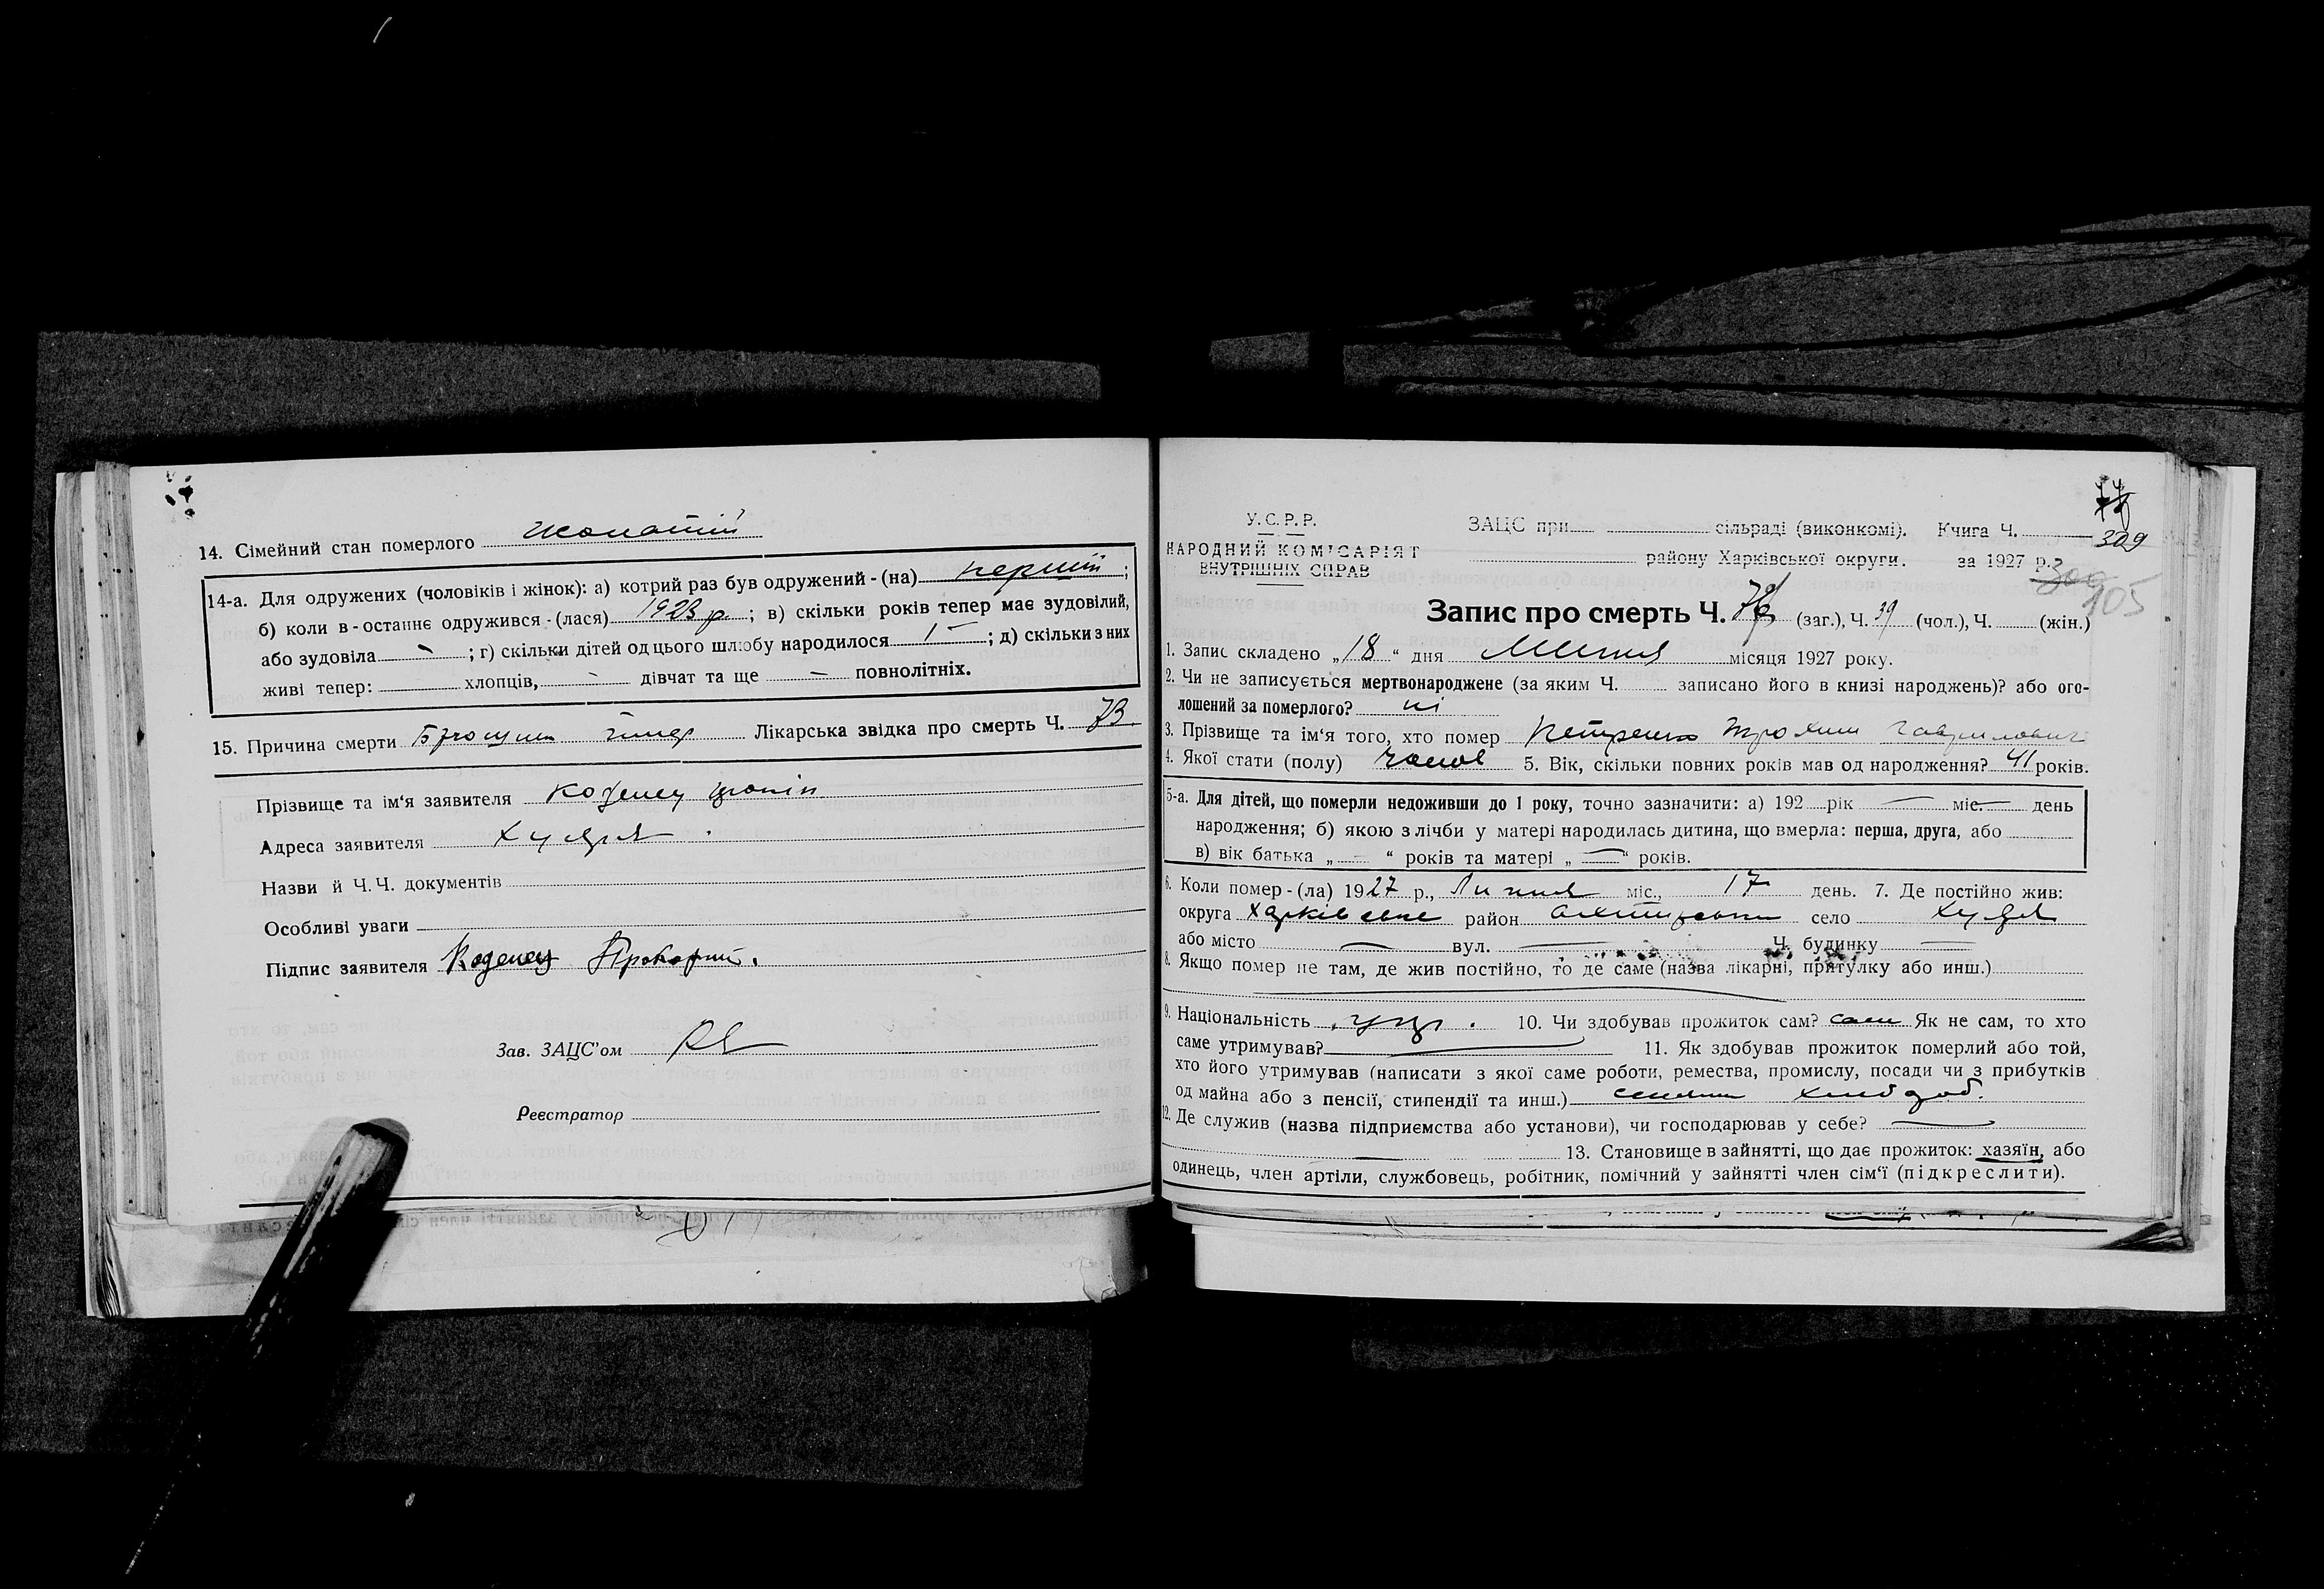 14. Сімейний стан померлого жонатий
14-а. Для одружених (чоловіків і жінок): а) котрий раз був одружений - (на) перший ;
б) коли в-останнє одружився - (лася) 1923 р. ; в) скільки років тепер має зудовілий,
або зудовіла - ; г) скільки дітей од цього шлюбу народилося 1 - ; д) скільки з них
живі тепер: хлопців, - дівчат та ще - повнолітніх.
15. Причина смерти тиф Лікарська звідка про смерть Ч. 73
Прізвище та ім'я заявителя Коденец
Адреса заявителя
Назви й Ч.Ч. документів
Особливі уваги
Підпис заявителя Коденец Прокофий.
Зав. ЗАЦС'ом
Реєстратор
У.С.Р.Р.
НАРОДНИЙ КОМІСАРІЯТ
ВНУТРІШНІХ СПРАВ
ЗАЦС при сільраді (виконкомі). Книга Ч.
309
району Харківської округи. за 1927 р.
300
105
Запис про смерть Ч. 76 (заг.), Ч. 39 (чол.), Ч. (жін.)
1. Запис складено „18“ дня Липня місяця 1927 року.
2. Чи не записується мертвонароджене (за яким Ч. записано його в книзі народжень)? або ого-
лошений за померлого? ні
3. Прізвище та ім'я того, хто помер Петренко Трохим Гаврилович
4. Якої стати (полу) чолов 5. Вік, скільки повних років мав од народження? 41 років.
5-а. Для дітей, що померли недоживши до 1 року, точно зазначити: а) 192 рік — міс. — день
народження; б) якою з лічби у матері народилась дитина, що вмерла: перша, друга, або
в) вік батька „ — “ років та матері „ — “ років.
6. Коли помер - (ла) 1927 р., Липня міс., 17 день. 7. Де постійно жив:
округа Харківське район село
або місто — вул. — Ч. будинку —
8. Якщо помер не там, де жив постійно, то де саме (назва лікарні, притулку або инш.)
9. Національність укр. 10. Чи здобував прожиток сам? сам Як не сам, то хто
саме утримував? — 11. Як здобував прожиток померлий або той,
хто його утримував (написати з якої саме роботи, ремества, промислу, посади чи з прибутків
од майна або з пенсії, стипендії та инш.) хлібороб.
12. Де служив (назва підприємства або установи), чи господарював у себе? —
— 13. Становище в зайнятті, що дає прожиток: хазяїн, або
одинець, член артіли, службовець, робітник, помічний у зайнятті член сім'ї (підкреслити).